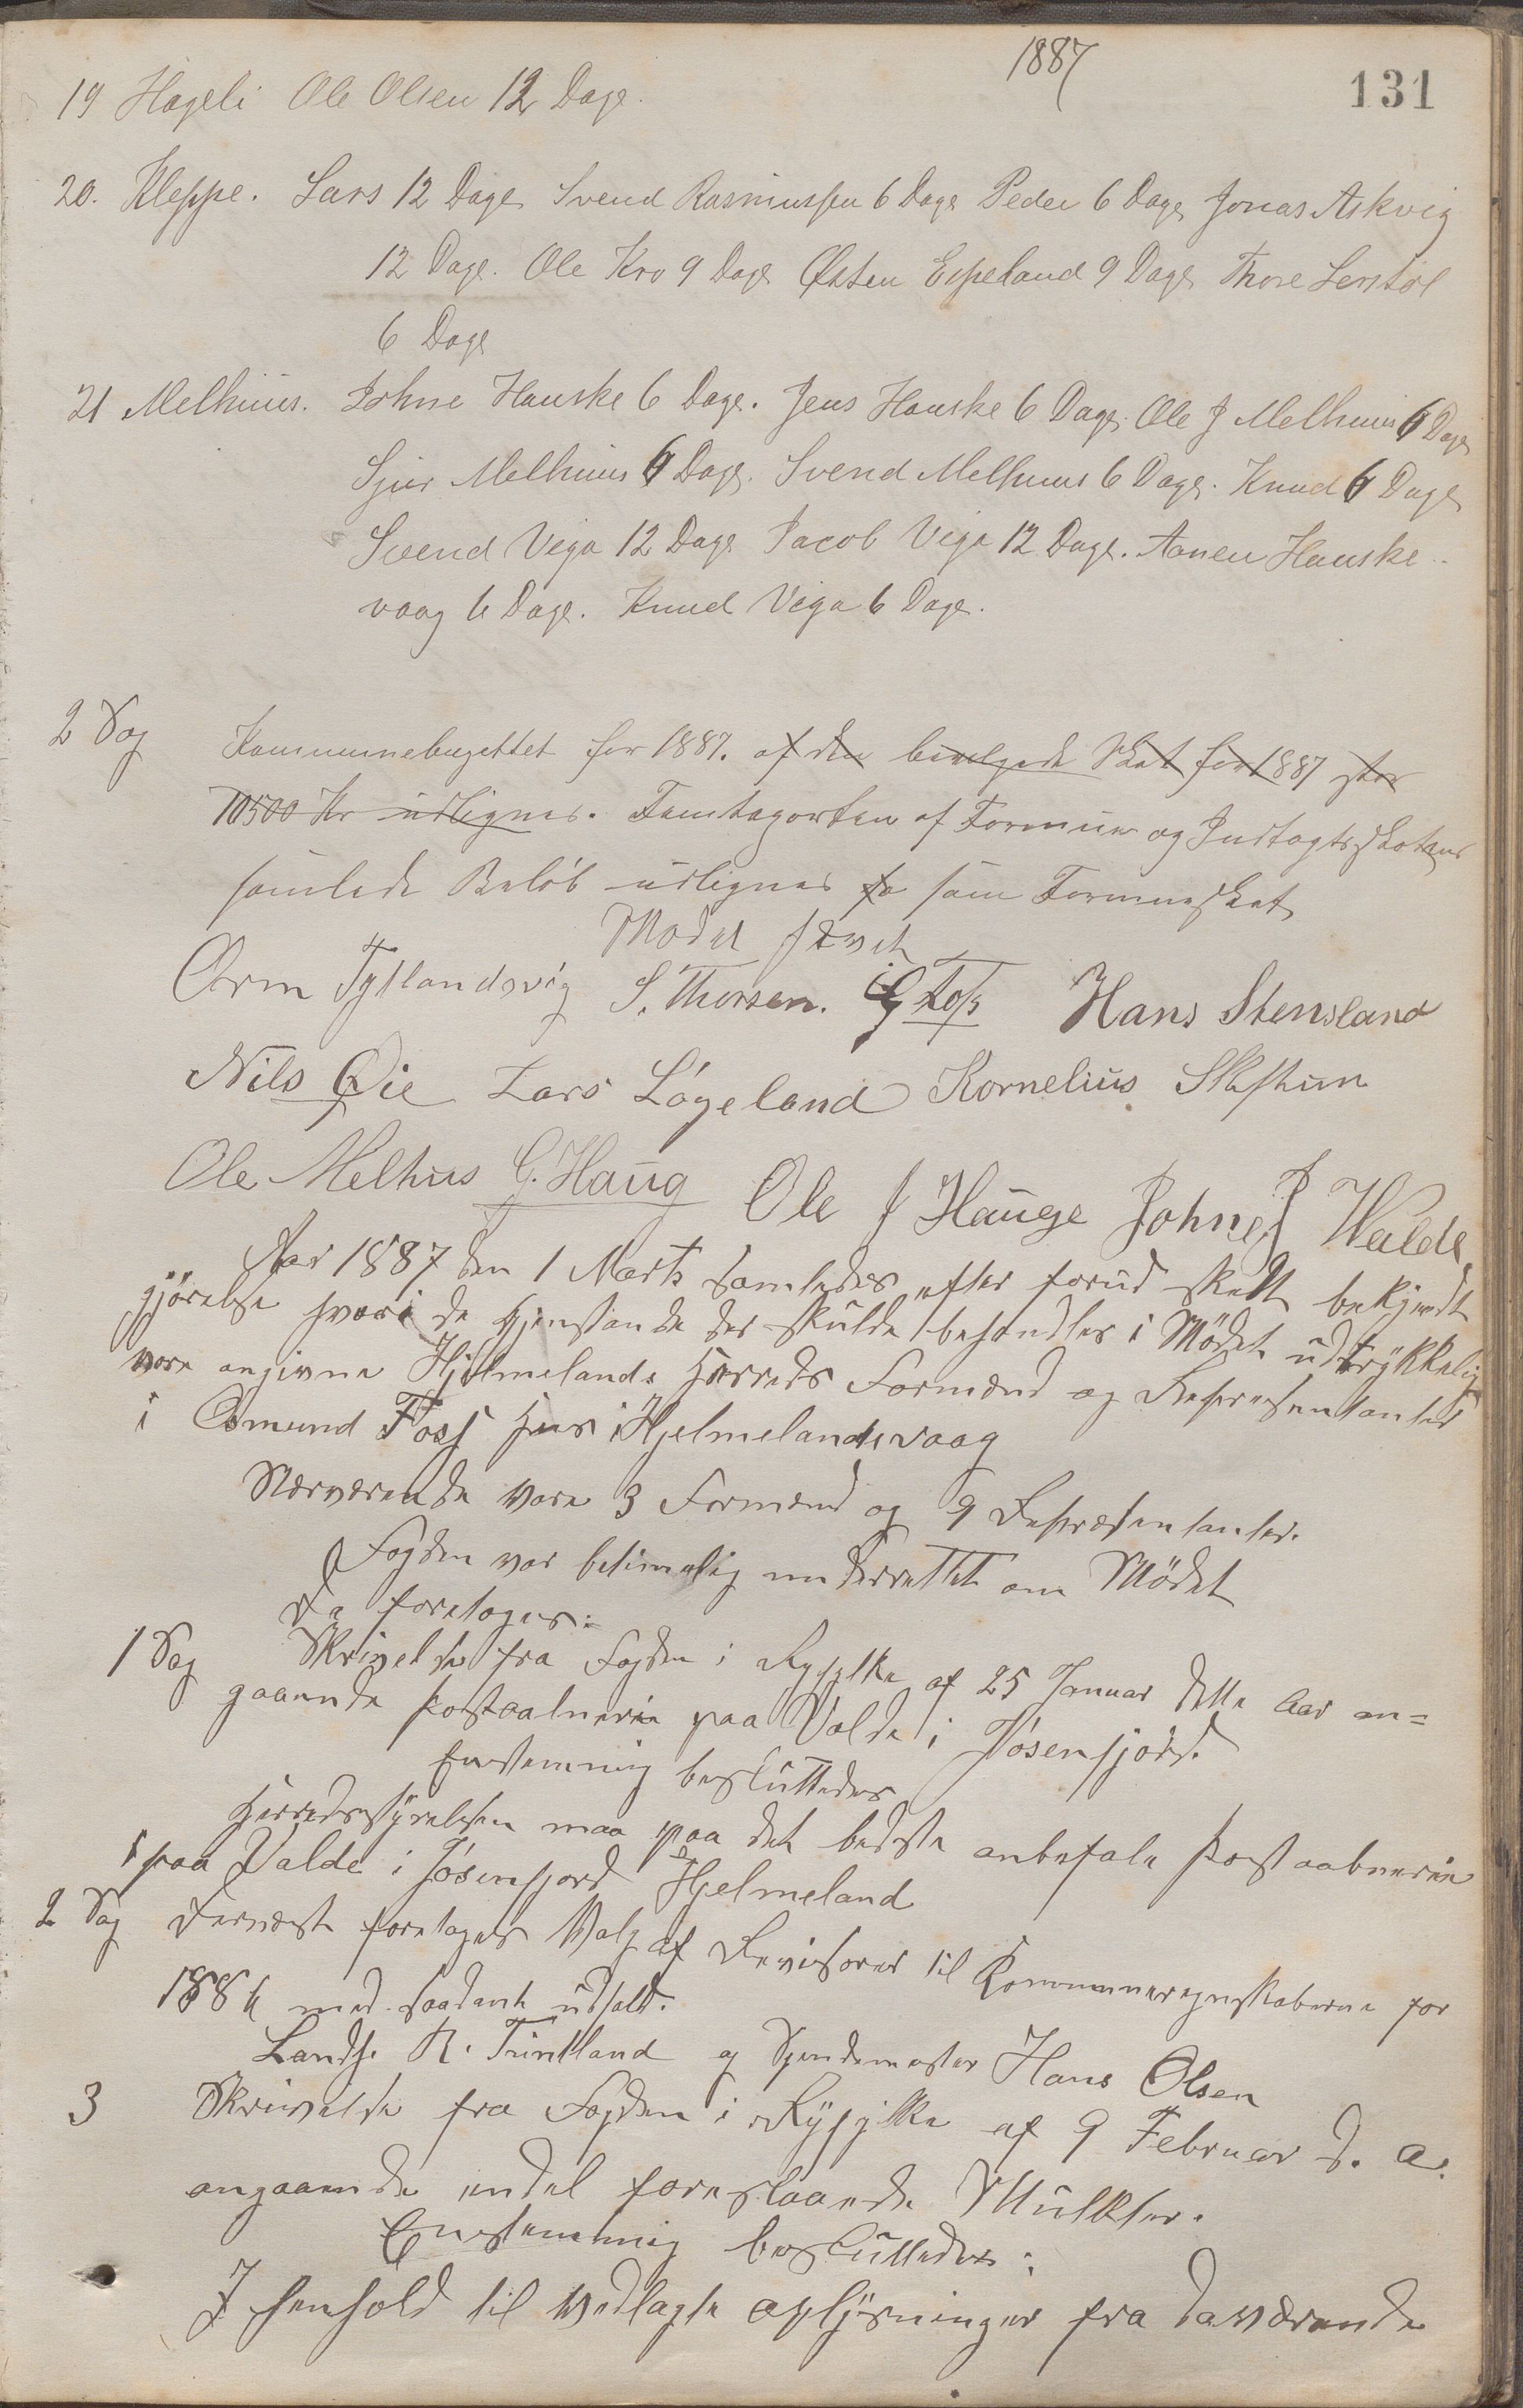 1887
131
19 Hageli Ole Olsen 12 Dage.
20. Kleppe. Lars 12 Dage Svend Rasmussen 6 Dage Peder 6 Dage Jonas Askvig
12 Dage. Ole Kro 9 Dage Østen Espeland 9 Dage Thore
6 Dage
21 Melhuus. Johne Hauske 6 Dage. Jens Hauske 6 Dage. Ole J Melhuus 6 Dage
Sjur Melhuus 6 Dage. Svend Melhuus 6 Dage. Knud 6 Dage
Svend Viga 12 Dage Jacob Viga 12 Dage. Aanen Hauske-
vaag 6 Dage. Knud Viga 6 Dage.
2 Sag
Kommunebugettet for 1887. af den bevilgede Skat for 1887 stor
10500 Kr udlignes. Femteparten af Formue og Indtægtsskatens
samlede Beløb udlignes som Formueskat
Mødet hævet
Orm Tytlandsvig S. Thorsen. Hans Stensland
Nils Øie Lars Løgeland Kornelius
Ole Melhus G. Haug Ole J Hauge Johne J Walde
Aar 1887 den 1 Marts samledes efter forud skedt bekjendt
gjørelse hvori de Gjenstande der skulde behandles i Mødet udtrykkelig
vare angivne Hjelmelands Herreds Formænd og Repræsentanter
i Osmund Foss Hus i Hjelmelandsvaag
Nærværende vare 3 Formænd og 9 Repræsentanter.
Fogden var betimelig underrettet om Mødet
Da foretoges:
1 Sag Skrivelse fra Fogden i Ryfylke af 25 Januar dette Aar an=
gaaende Postaabneri paa Valde i Jøsenfjord.
Enstemmig besluttedes
Herredsstyrelsen maa paa det bedste anbefale Postaabneri
paa Valde i Jøsenfjord Hjelmeland
2 Sag Dernæst foretoges Valg af Revisorer til Kommuneregnskaberne for
1886 med saadant udfald.
Landh. R. Tuntland og Hans Olsen
3 Skrivelse fra Fogden i Ryfylke af 9 Februar d. A.
angaaende endel foreslaaede Mulkter.
Enstemmig besluttedes:
I henhold til vedlagte oplysninger fra daværende